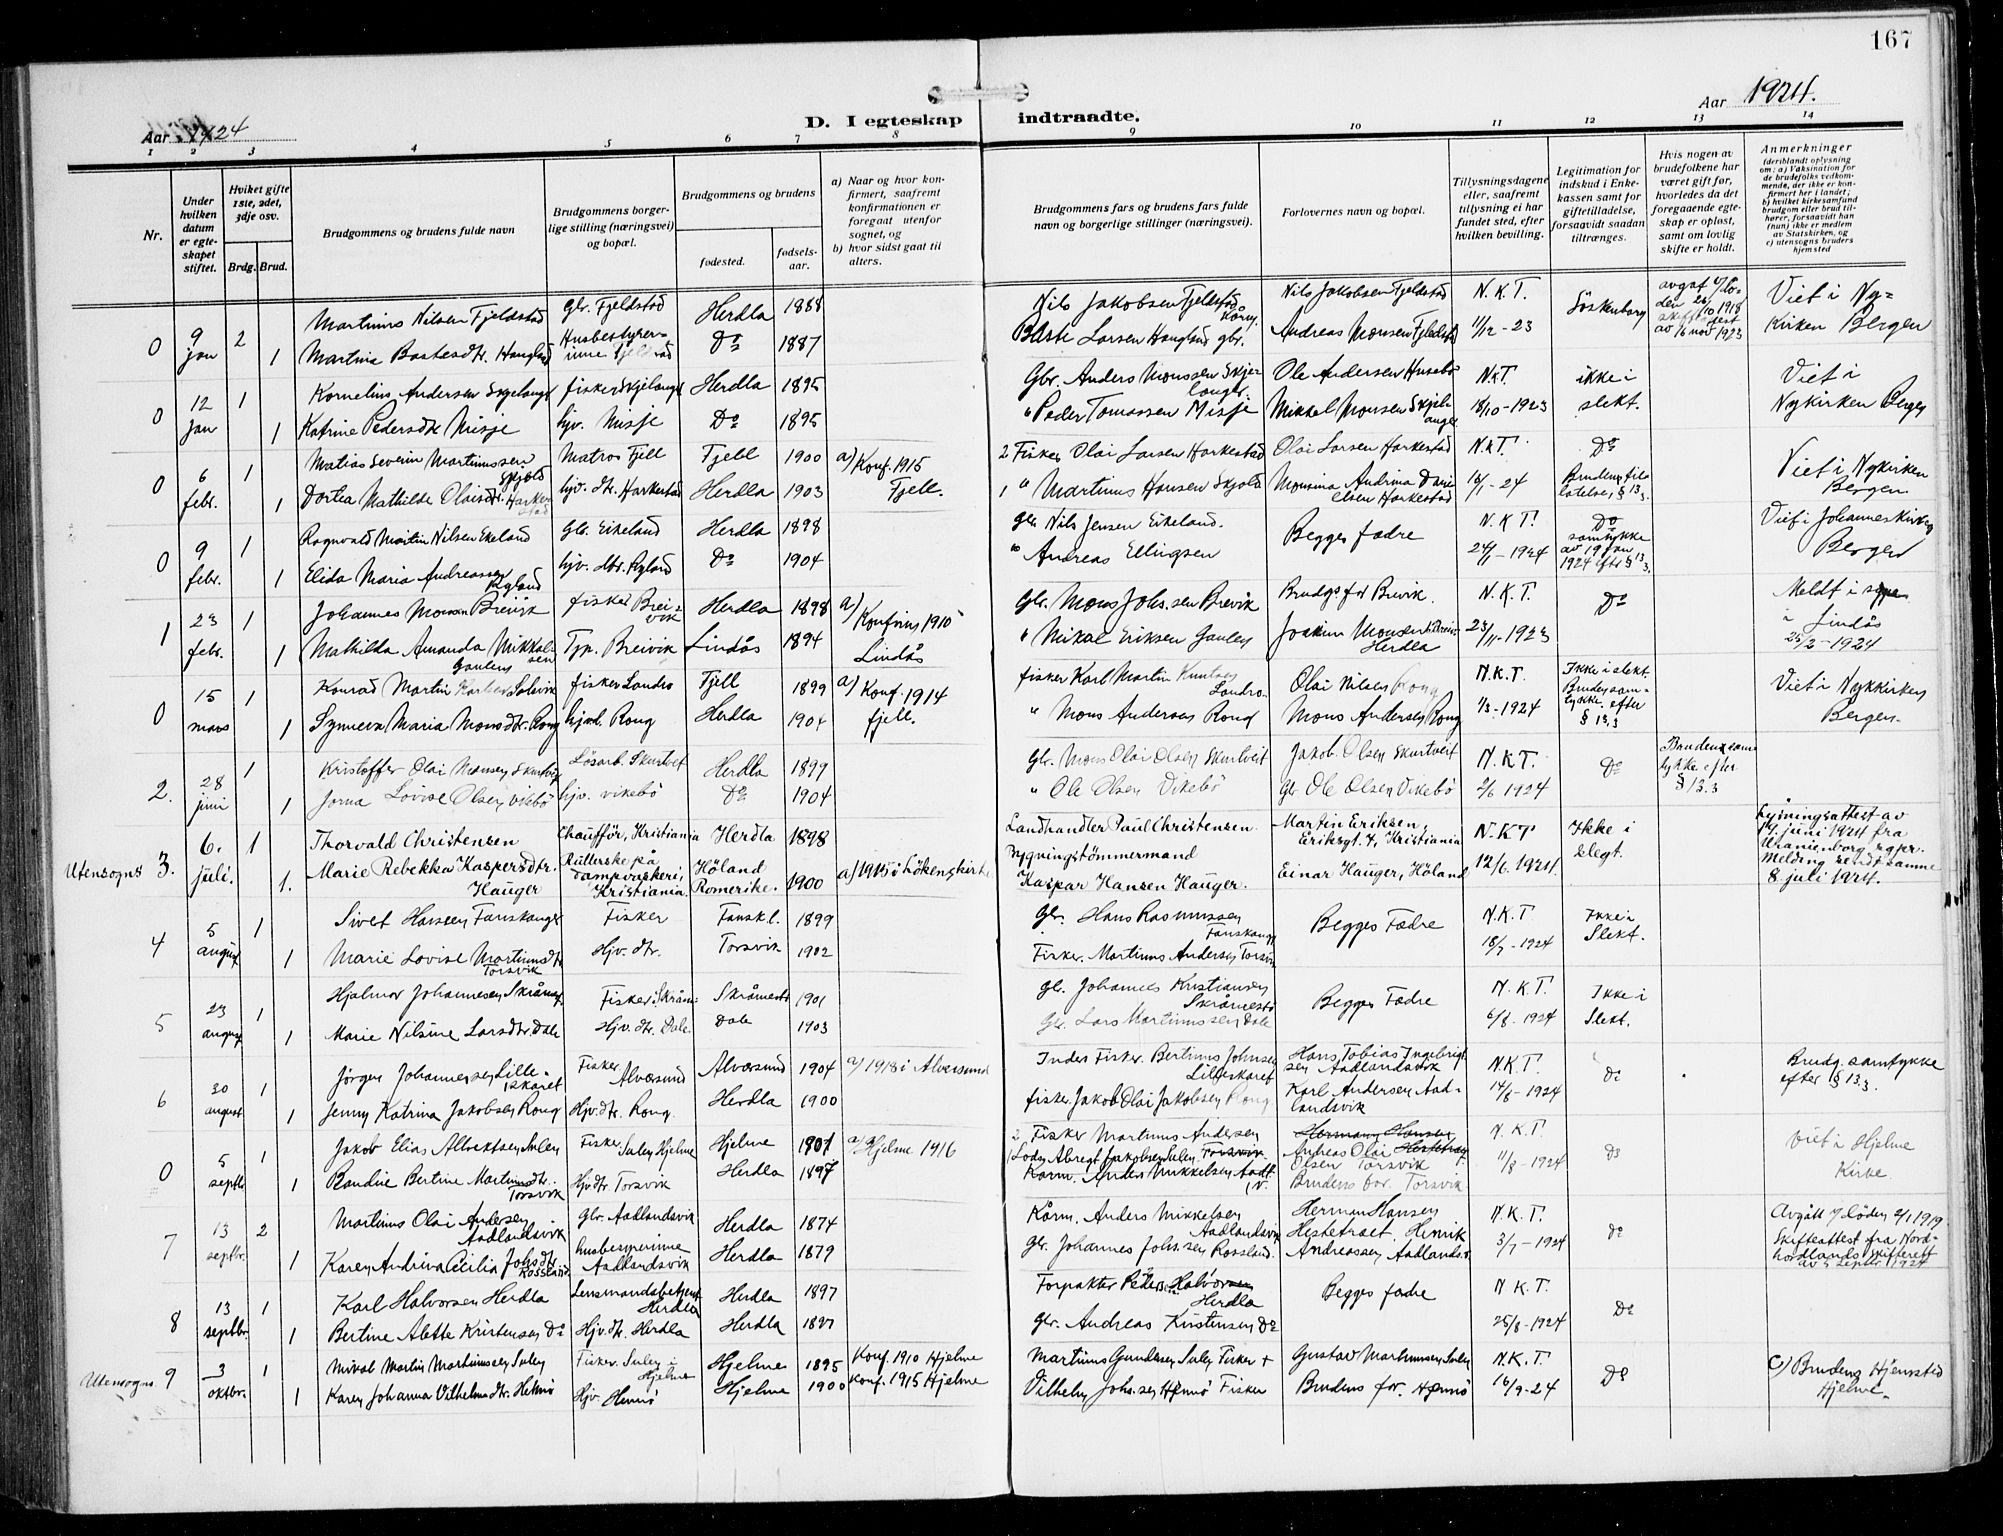 167
Aar 1924
D. I egteskap indtraadte.
Aar 1924.
1 2 3 4 5 6 7 8 9 10 11 12 13 14
Nr.
Under hvilken datum er egteskapet stiftet.
Hvilket gifte 1ste, 2det, 3dje osv.
Brdg. Brud.
Brudgommens og brudens fulde navn
Brudgommens borgerlige stilling (næringsvei) og bopæl.
Brudgommens og brudens
fødested.
fødselsaar.
a) Naar og hvor konfirmert, saafremt konfirmationen er foregaat utenfor sognet, og
b) hvor sidst gaat til alters.
Brudgommens fars og brudens fars fulde navn og borgerlige stillinger (næringsvei).
Forlovernes navn og bopæl.
Tillysningsdagene eller, saafremt tillysning ei har fundet sted, efter hvilken bevilling.
Legitimation for indskud i Enkekassen samt for giftetilladelse, forsaavidt saadan tiltrænges.
Hvis nogen av brudefolkene har været gift før, hvorledes da det foregaaende egteskap er opløst, samt om lovlig skifte er holdt.
Anmerkninger (deriblandt oplysning om: a) Vaksination for de brudefolks vedkommende, der ikke er konfirmert her i landet; b) hvilket kirkesamfund brudgom eller brud tilhører, forsaavidt han (hun) ikke er medlem av Statskirken, og c) utensogns bruders hjemsted
0 9 jan 2 Martinus Nilsen Fjeldstad Gbr. Fjeldstad Herdla 1888 Nils Jakobsen Fjeldstad Kårm. Nils Jakobsen Fjeldstad N.K.T. Søskenbarn Viet i Ny-
1 Martina Bastesdtr. Hangland Husbestyrerinne Fjeldstad Do 1887 Baste Larsen Hangland gbr. Andreas Monsen Fjeldstad 11/12-23 Kirken Bergen
0 12 jan 1 Kornelius Andersen Skjelanger fisker Skjelanger Herdla 1895 Gbr. Anders Monssen Skjelanger Ole Andersen Husebø N.K.T. ikke i Viet i
1 Katrine Pedersdtr Misje hjv. Misje Do 1895 " Peder Tomassen Misje Mikkel Monsen Skjelanger 18/10-1923 slekt. Nykirken Bergen
0 6 febr. 1 Matias Severin Martinussen Skjold Matros Fjell Fjell 1900 a) Konf. 1915 2 Fisker Olai Larsen Harkestad Olai Larsen Harkestad N.K.T. Do Viet i Nykirken
1 Dortea Mathilde Olaisdtr. Harkestad hjv. dtr. Harkestad Herdla 1903 Fjell. 1 " Martinus Hansen Skjold Monsina Andrina Danielsen Harkestad 16/1-24 § 13.3. Bergen
0 9 febr. 1 Ragnvald Martin Nilsen Ekeland Gbr. Eikeland Herdla 1898 gbr Nils Jensen Eikeland. Begges fædre N.K.T. Do Viet i Johanneskirken
1 Elida Maria Andreassen Rylandd hjv. dtr. Ryland Do 1904 " Andreas Ellingsen 24/1-1924 samtykke av 19 jan 1924 efter § 13.3. Bergen
1 23 febr. 1 Johannes Monsen Breivik fisker Breivik Herdla 1898 a) Gbr. Mons Johs.sen Brevik Brudgs far Breivik. N.K.T. Do Meldt i
1 Mathilda Amanda Mikkelsen Gaulen Tjp. Breivik Lindås 1894 Konfirm 1910 Lindås " Mikal Eriksen Gaulen Joakim Monsen Breivik Herdla 23/11-1923 i Lindås 25/2-1924
0 15 mars 1 Konrad Martin Karlsen Solsvik fisker Landro Fjell 1899 a) Konf. 1914 fisker Karl Martin Knutsen Landro. Olai Nilsen Rong N.K.T. Ikke i slekt. Viet i Nykkirken
1 Synneva Maria Monsdtr. Rong hjvd. Rong Herdla 1904 fjell. " Mons Andersen Rong Mons Andersen Rong 1/3-1924 Brudens samtykke. efter § 13.3 Bergen.
2. 28 juni 1 Kristoffer Olai Monsen Skurtveit Løsarb. Skurtveit Herdla 1899 Gbr. Mons Olai Olsen Skurtveit Jakob Olsen Skurtveit N.K.T. Do Brudens samtykke efter § 13.3
1 Jorna Lovise Olsen Vikebø hjv. Vikebø Do 1904 " Ole Olsen Vikebø Gbr Ole Olsen Vikebø 2/6 1924
Utensogns 3. 6. juli. 1 Thorvald Christensen Chauffør, Kristiania Herdla 1898 Landhandler Paul Christensen. Martin Eriksen, Eriksgt. 7, Kristiania N.K.T Ikke i slegt. Lysningsattest av 19. juni 1924 fra Uranienborg
1. Marie Rebekka Kaspersdtr. Hauger Rullerske på dampvaskeri, Kristiania Høland Romerike. 1900 a) 1915 i Lökens kirke Bygningstømmermand Kaspar Hansen Hauger. Einar Hauger, Høland 12/6.1924. Melding sendt samme 8. juli 1924.
4 5 august 1 Sivert Hansen Fanskanger Fisker Fansk.l. 1899 gbr. Hans Rasmussen Fanskanger Begges Fædre N.K.T. Ikke i
1 Marie Lovise Martinusdtr Torsvik Hjv. dtr. Torsvik 1902 Fisker. Martinus Andersen Torsvik 18/7-1924 Slekt.
5 23 august 1 Hjalmar Johannesen Skråmestø Fisker Skråm: Skråmestø 1901 gbr. Johannes Kristiansen Skråmestø Begges Fædre N.K.T. Ikke i
1 Marie Nilsine Larsdtr. Dale Hjv. dtr. Dale. Dale 1903 Gbr. Lars Martinussen Dale 6/8-1924 Slekt.
6 30 august 1 Jørgen Johannessen Lilleskaret Fisker Alversund Alversund 1904 a) 1918 i Alversund Inders Fisker. Bertinus Johnsen Lilleskaret Hans Tobias Ingebrigtsen Aadlandsvik N.K.T. Do Brudg. samtykke
1 Jenny Katrina Jakobsen Rong Hjv. dtr. Rong. Herdla 1900 fisker Jakob Olai Jakobsen Rong Karl Andersen Aadlandsvik 14/8-1924 efter § 13.3.
0 5 septbr. 1 Jakob Elias Albrektsen Sulen Fisker Sulen Hjelme Hjelme 1901 a) Hjelme 1916 2 Fisker Martinus Andersen Torsvik Hermann Hansen Hestetræet N.K.T. Do Viet i Hjelme
1 Bendine Bertine Martinusdtr. Torsvik Hjv. dtr. Torsvik Herdla 1897 1 Albregt Jakobsen Sulen Karm. Anders Mikkelsen Aadl. Andreas Olai Olsen Torsvik Brudens far. Torsvik 11/8-1924 Kirke
7 13 septbr. 2 Martinus Olai Andersen Aadlandsvik Gbr. Aadlandsvik Herdla 1874 Kårm. Anders Mikkelsen Aadlandsvik Herman Hansen Hestetræet, Henrik N.K.T. Do Avgått v/ døden 2/1 1919.
1 Karen Andrina Cecilia Johsdtr Rossland husbestyrerinne Aadlandsvik Herdla 1879 gbr. Johannes Johs.sen Rossland. Andreassen Aadlandsv. 3/7-1924 Skifteattest fra Nordhordlands skifterett av 5 septbr 1924
8 13 septbr. 1 Karl Halvorsen Herdla Lensmandsbetjent Herdla Herdla 1897 Forpakter Peder Halvorsen Herdla Begges fædre N.K.T. Do
1 Bertine Alette Kristensen Do Hjv. dtr. Herdla Herdla 1897 Gbr. Andreas Kirstensen Do 25/8-1924
Utensogns. 9 3 oktbr. 1 Mikal Martin Martinussen Sulen Fisker. Sulen i Hjelme Hjelme 1895 Konf. 1910 Hjelme Martinus Gundersen Sulen Fisker + Gustav Martinussen Sulen N.K.T. Do c) Brudens Hjemsted
1 Karen Johanna Vilhelmsdtr. Hernø Hjv. Hernø Hjelme 1900 Konf. 1915 Hjelme Vilhelm Johs.sen Hernø Fisker Brudens far. Hernø 16/9-24 Hjelme.